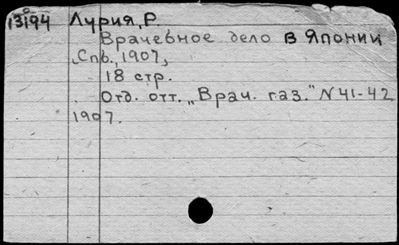 13194 Лурия, Р.
Врачебное дело в Японии
Спб., 1907,
18 стр.
Отд. отт. „Врач. газ." N 41-42
1907.